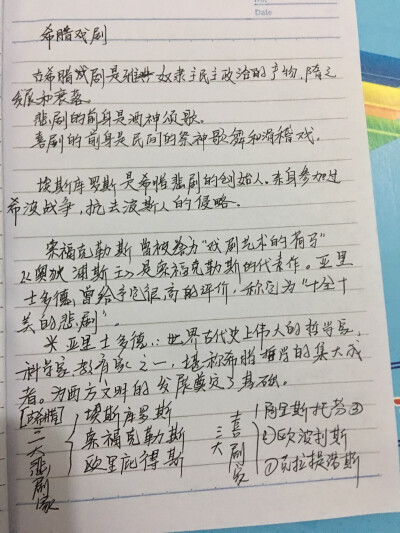 Date
希腊戏剧
古希腊戏剧是雅典奴隶主民主政治的产物,随之
发展和衰落
悲剧的前身是酒神颂歌。
喜剧的前身是民间的祭神歌舞和滑稽戏.
埃斯库罗斯是希腊悲剧的创始人.亲自参加过
希波战争,抗击波斯人的侵略.
索福克勒斯曾被誉为"戏剧艺术的荷马"
《奥狄浦斯王》是索福克勒斯的代表作。亚里
士多德曾给予它很高的评价,称它为"十全十
美的悲剧"。
※ 亚里士多德:世界古代史上伟大的哲学家、
科学家教育家之一,堪称希腊哲学的集大成
者。为西方文明的发展奠定了基础。
[古希腊]
三大悲剧家
埃斯库罗斯
索福克勒斯
欧里庇得斯
三大喜剧家
阿里斯托芬③
②欧波利斯
①克拉提诺斯